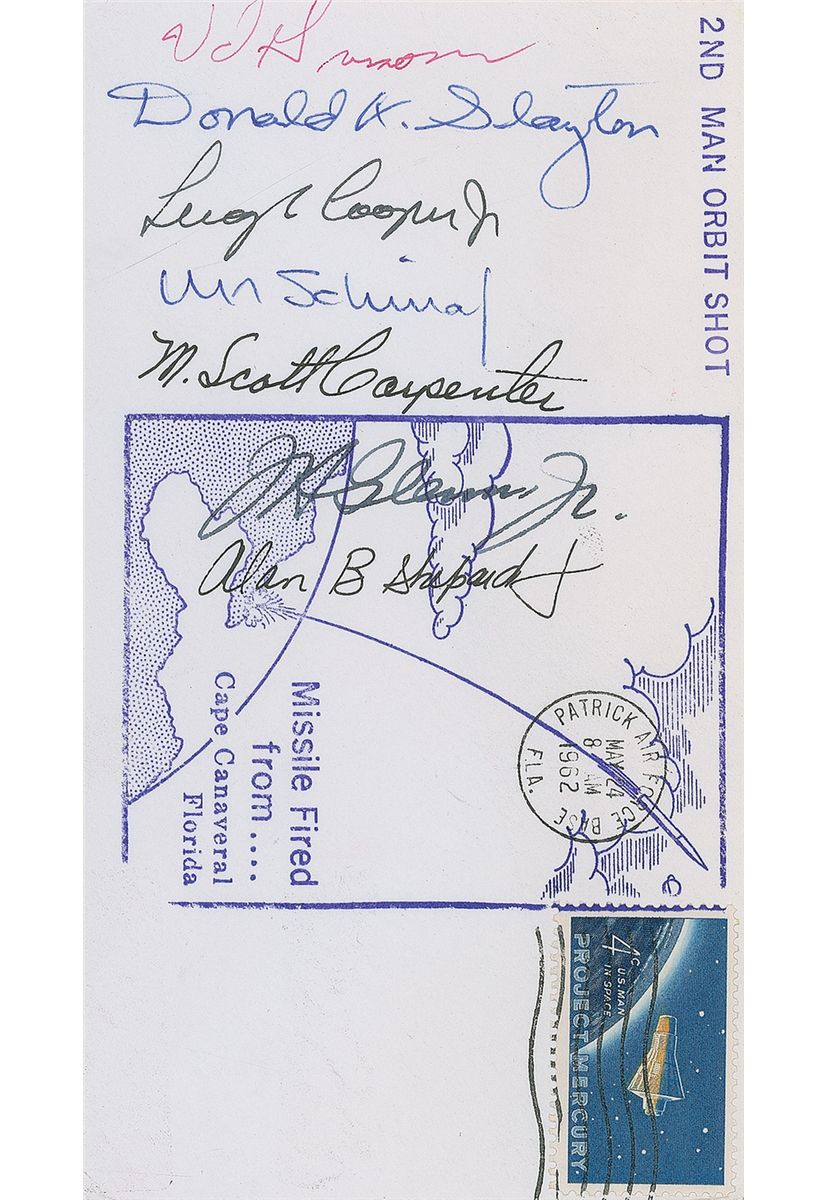 V I Grissom
Donald K. Slayton
Leroy G Cooper Jr
M. Scott Carpenter
JH Glenn Jr.
Alan B Shepard Jr
2ND MAN ORBIT SHOT
Missile Fired
from....
Cape Canaveral
Florida
PATRICK AIR FORCE BASE
MAY 24
8 AM
1962
FLA.
4¢
U.S. MAN
IN SPACE
PROJECT MERCURY